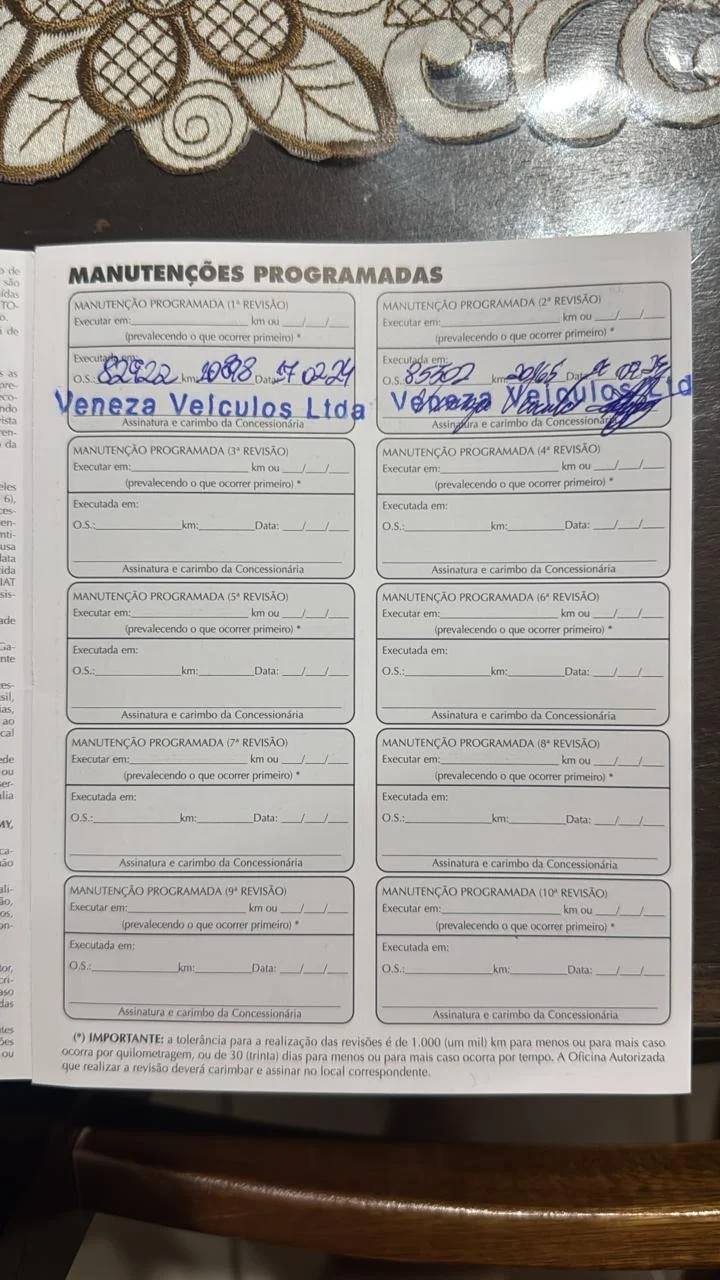 MANUTENÇÕES PROGRAMADAS
MANUTENÇÃO PROGRAMADA (1ª REVISÃO)
Executar em:____________ km ou ___/___/___
(prevalecendo o que ocorrer primeiro) *
Executada em:
O.S.: 82922 km: Data: 17 02 24
Veneza Veículos Ltda
Assinatura e carimbo da Concessionária
MANUTENÇÃO PROGRAMADA (2ª REVISÃO)
Executar em:____________ km ou ___/___/___
(prevalecendo o que ocorrer primeiro) *
Executada em:
O.S. km: Data
Veneza Veículos Ltd
Assinatura e carimbo da Concessionária
MANUTENÇÃO PROGRAMADA (3ª REVISÃO)
Executar em:____________ km ou ___/___/___
(prevalecendo o que ocorrer primeiro) *
Executada em:
O.S.:____________km:________Data: ___/___/___
Assinatura e carimbo da Concessionária
MANUTENÇÃO PROGRAMADA (4ª REVISÃO)
Executar em:____________ km ou ___/___/___
(prevalecendo o que ocorrer primeiro) *
Executada em:
O.S.:____________km:________Data: ___/___/___
Assinatura e carimbo da Concessionária
MANUTENÇÃO PROGRAMADA (5ª REVISÃO)
Executar em:____________ km ou ___/___/___
(prevalecendo o que ocorrer primeiro) *
Executada em:
O.S.:____________km:________Data: ___/___/___
Assinatura e carimbo da Concessionária
MANUTENÇÃO PROGRAMADA (6ª REVISÃO)
Executar em:____________ km ou ___/___/___
(prevalecendo o que ocorrer primeiro) *
Executada em:
O.S.:____________km:________Data: ___/___/___
Assinatura e carimbo da Concessionária
MANUTENÇÃO PROGRAMADA (7ª REVISÃO)
Executar em:____________ km ou ___/___/___
(prevalecendo o que ocorrer primeiro) *
Executada em:
O.S.:____________km:________Data: ___/___/___
Assinatura e carimbo da Concessionária
MANUTENÇÃO PROGRAMADA (8ª REVISÃO)
Executar em:____________ km ou ___/___/___
(prevalecendo o que ocorrer primeiro) *
Executada em:
O.S.:____________km:________Data: ___/___/___
Assinatura e carimbo da Concessionária
MANUTENÇÃO PROGRAMADA (9ª REVISÃO)
Executar em:____________ km ou ___/___/___
(prevalecendo o que ocorrer primeiro) *
Executada em:
O.S.:____________km:________Data: ___/___/___
Assinatura e carimbo da Concessionária
MANUTENÇÃO PROGRAMADA (10ª REVISÃO)
Executar em:____________ km ou ___/___/___
(prevalecendo o que ocorrer primeiro) *
Executada em:
O.S.:____________km:________Data: ___/___/___
Assinatura e carimbo da Concessionária
(*) IMPORTANTE: a tolerância para a realização das revisões é de 1.000 (um mil) km para menos ou para mais caso
ocorra por quilometragem, ou de 30 (trinta) dias para menos ou para mais caso ocorra por tempo. A Oficina Autorizada
que realizar a revisão deverá carimbar e assinar no local correspondente.